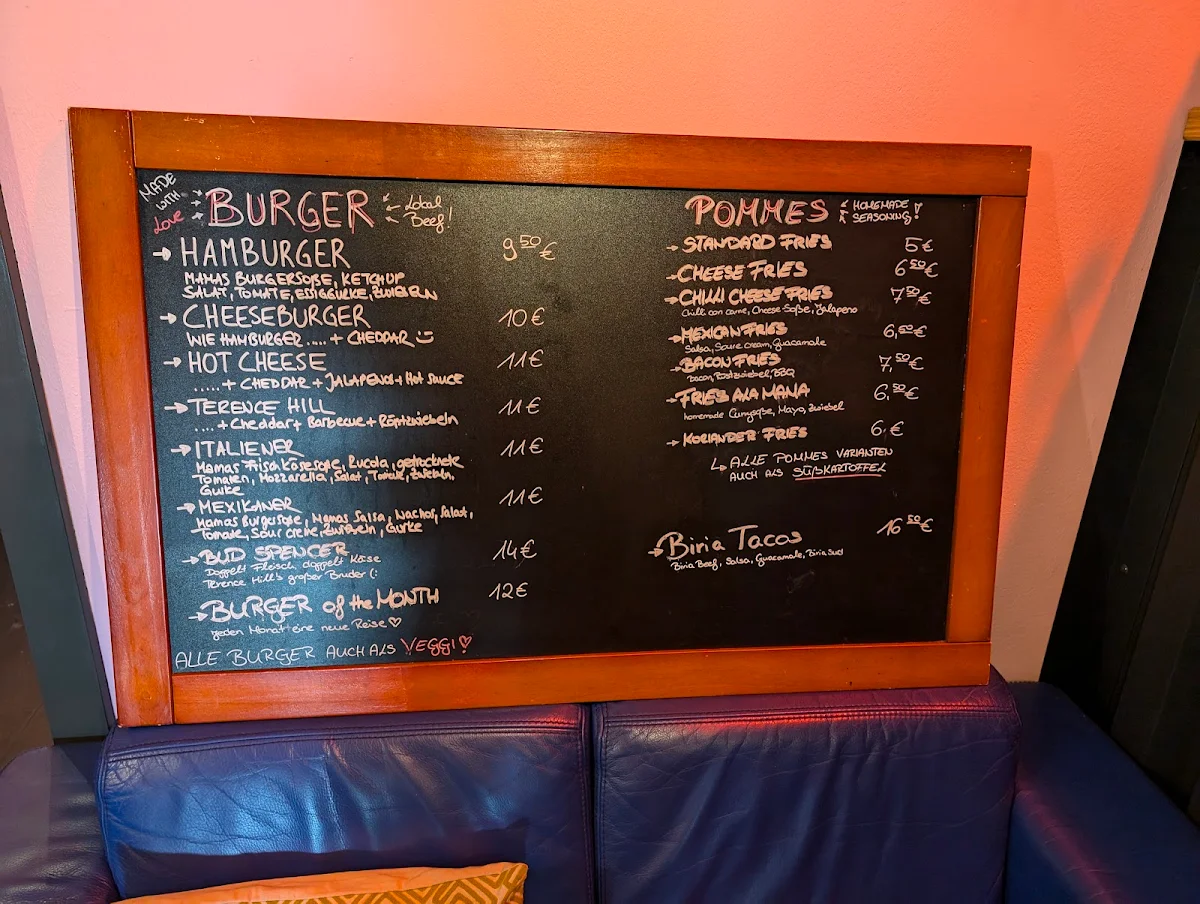 MADE WITH Love
BURGER
Local Beef!
→ HAMBURGER 9 50 €
MAMAS BURGERSOßE, KETCHUP
SALAT, TOMATE, ESSIGGURKE, ZWIEBELN
→ CHEESEBURGER 10 €
WIE HAMBURGER .... + CHEDDAR
→ HOT CHEESE 11 €
..... + CHEDDAR + JALAPENOS + HOT SAUCE
→ TERENCE HILL 11 €
.... + Cheddar + Barbecue + Röstzwiebeln
→ ITALIENER 11 €
Mamas Frischkäsesoße, Rucola, getrocknete
Tomaten, Mozzarella, Salat, Tomate, Zwiebeln,
Gurke
→ MEXIKANER 11 €
Mamas Burgersoße, Mamas Salsa, Nachos, Salat,
Tomate, Sour creme, Zwiebeln, Gurke
→ BUD SPENCER 14 €
Doppelt Fleisch, doppelt Käse
Terence Hill's großer Bruder (:
→ BURGER of the MONTH 12 €
jeden Monat eine neue Reise ♡
ALLE BURGER AUCH ALS VEGGI!
POMMES
HOMEMADE
SEASONING!
→ STANDARD FRIES 5 €
→ CHEESE FRIES 6 50 €
→ CHILLI CHEESE FRIES 7 50 €
Chilli con carne, Cheese-Soße, Jalapeno
→ MEXICAN FRIES 6,50 €
Salsa, Soure cream, Guacamole
→ BACON FRIES 7,50 €
Bacon, Röstzwiebel, BBQ
→ FRIES AKA MANA 6,50 €
homemade Currysoße, Mayo, Zwiebel
→ KORIANDER FRIES 6.€
↳ ALLE POMMES VARIANTEN
AUCH ALS SÜßKARTOFFEL
→ Biria Tacos 16 50 €
Biria Beef, Salsa, Guacamole, Biria Sud